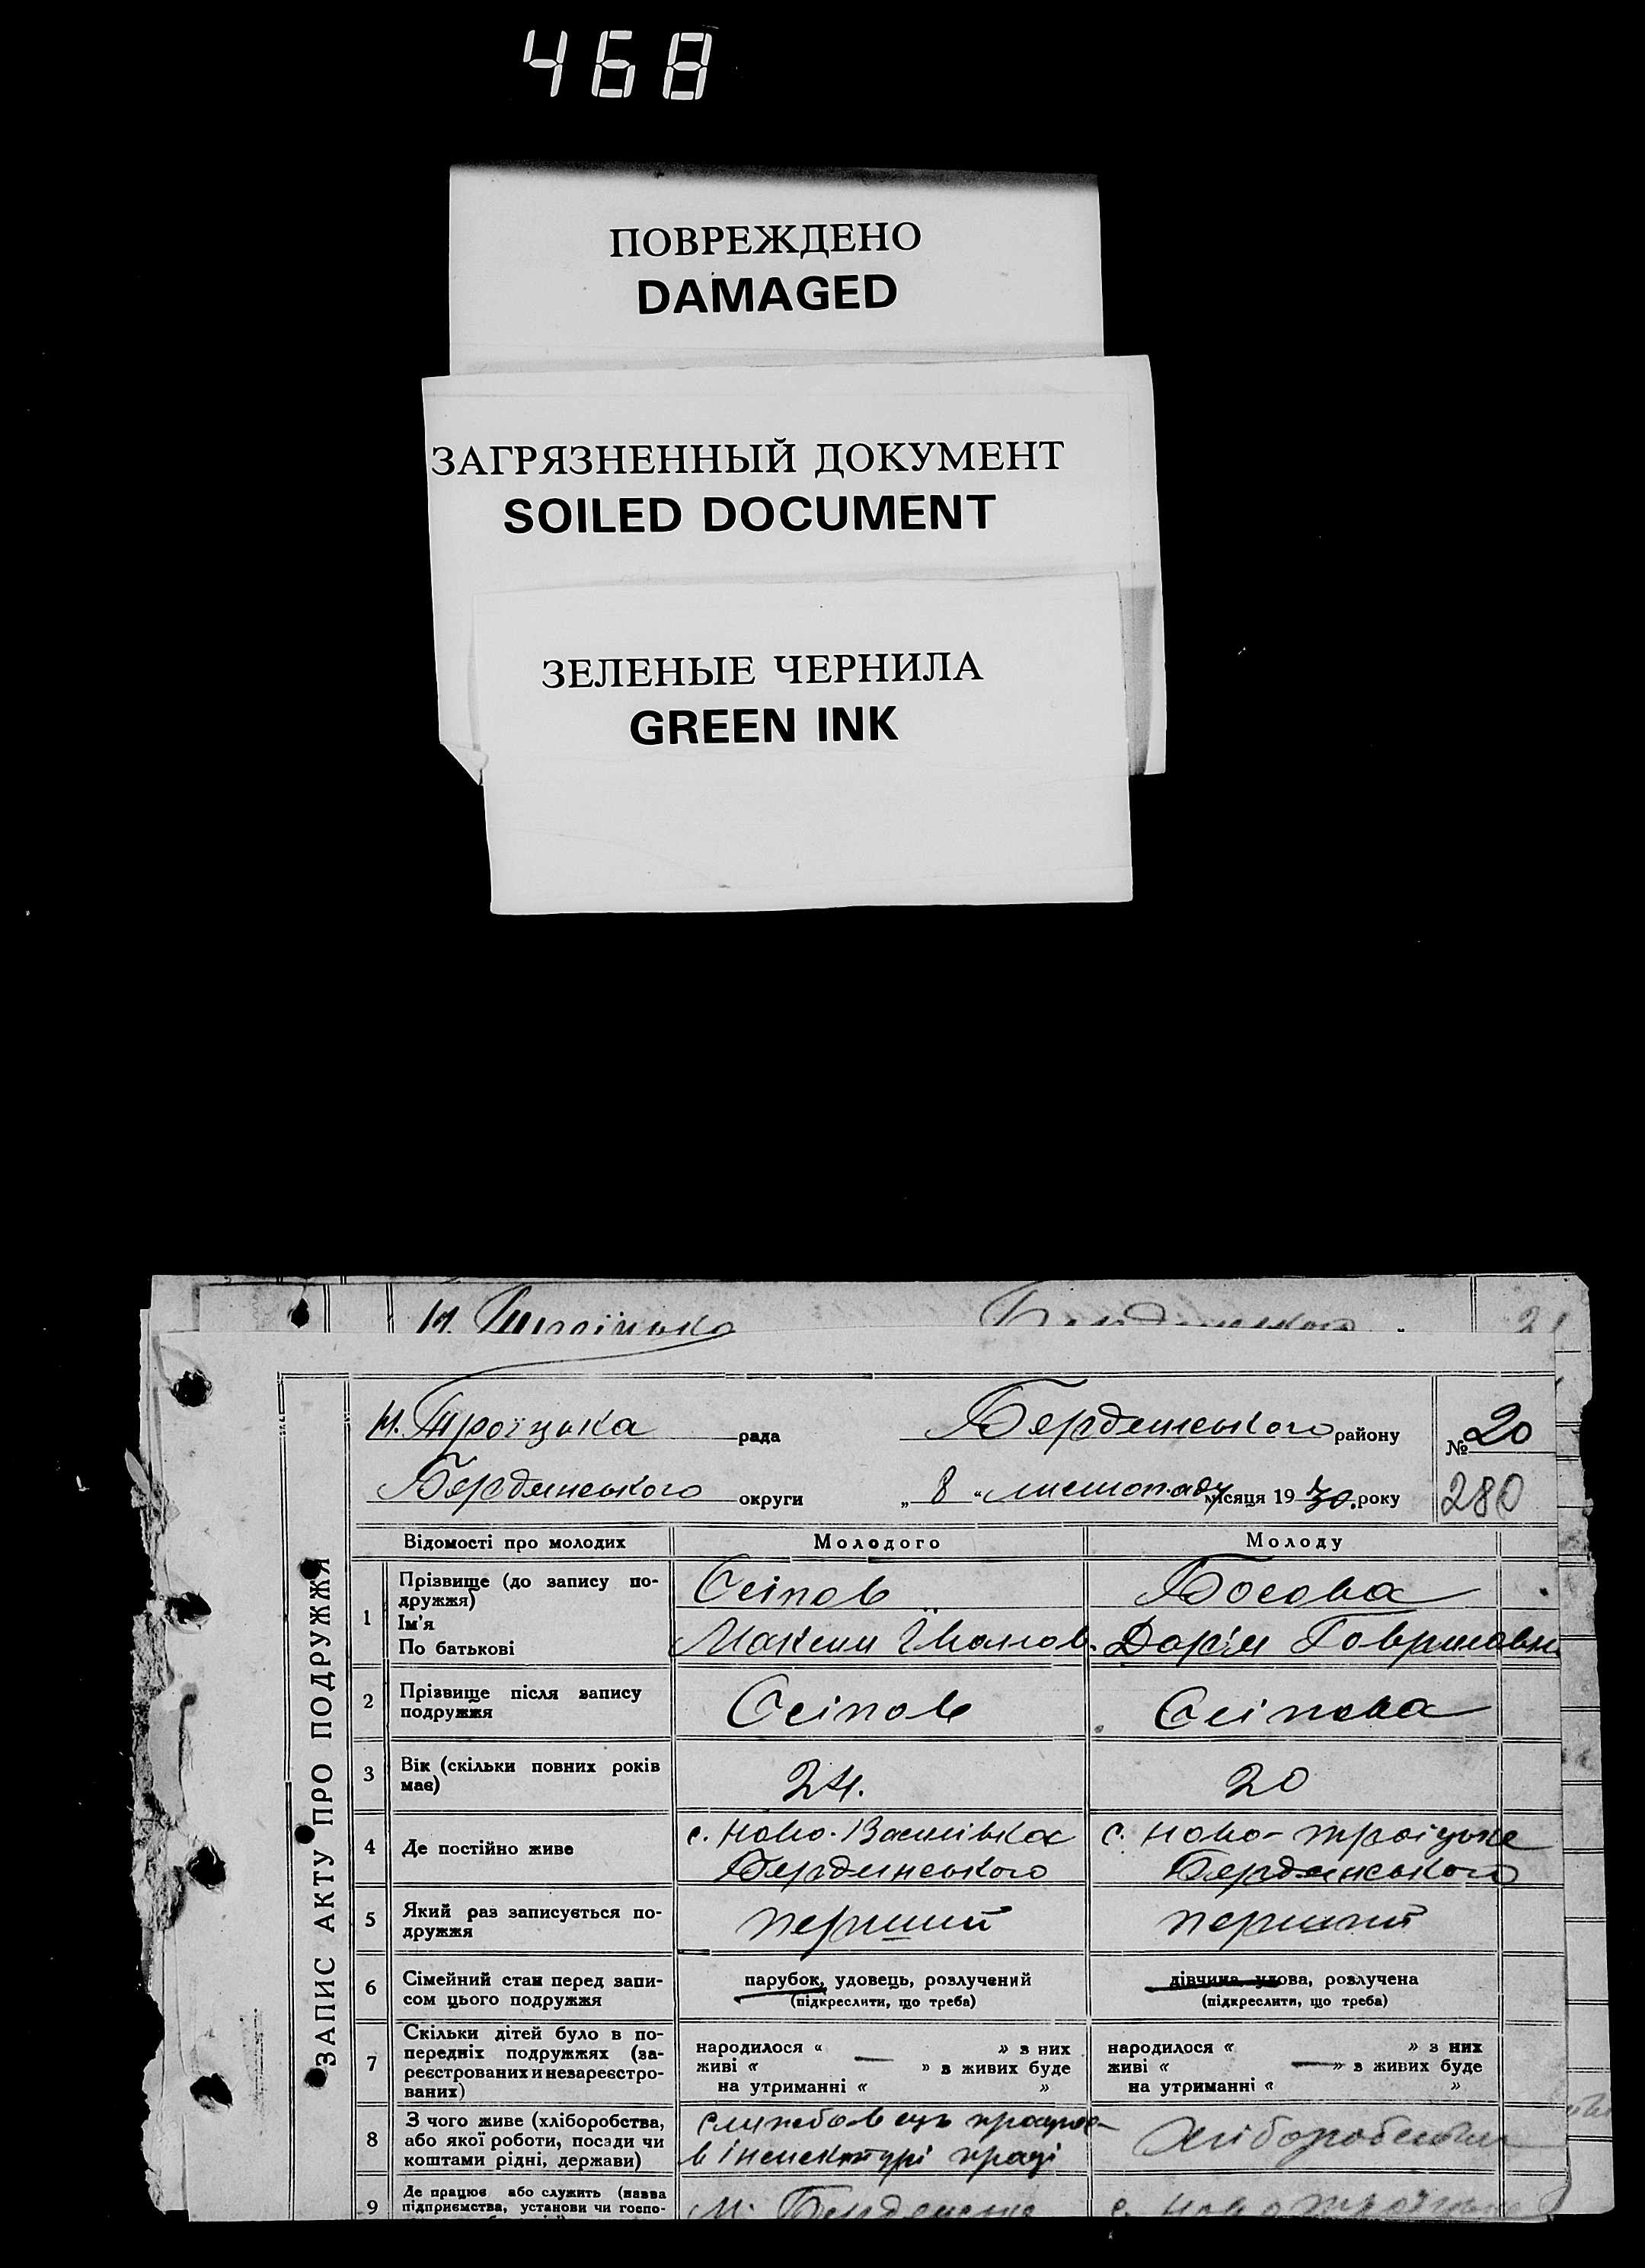 468
ПОВРЕЖДЕНО
DAMAGED
ЗАГРЯЗНЕННЫЙ ДОКУМЕНТ
SOILED DOCUMENT
ЗЕЛЕНЫЕ ЧЕРНИЛА
GREEN INK
Н. Троїцька
Н. Троїцька рада Бердянського району № 20
Бердянського округи „ 8 “ листопаду місяця 19 30. року 280
ЗАПИС АКТУ ПРО ПОДРУЖЖЯ
Відомості про молодих Молодого Молоду
1 Прізвище (до запису по-
дружжя) Осіпов Босова
Ім'я
По батькові Максим Іванов. Дар'я Говриловн
2 Прізвище після запису
подружжя Осіпов Осіпова
3 Вік (скільки повних років
має) 24. 20
4 Де постійно живе с. Ново-Василівка с. Ново-Троіцьке
Бердянського Бердянського
5 Який раз записується по-
дружжя перший перший
6 Сімейний стан перед запи-
сом цього подружжя парубок, удовець, розлучений дівчина, удова, розлучена
(підкреслити, що треба) (підкреслити, що треба)
7 Скільки дітей було в по-
передніх подружжях (за-
реєстрованих и незареєстро-
ваних)
народилося « » з них народилося « » з них
живі « — » в живих буде живі « — » в живих буде
на утриманні « » на утриманні « »
8 З чого живе (хліборобства,
або якої роботи, посади чи
коштами рідні, держави)
службовець працює
в інспектурі праці хліборобством
9 Де працює або служить (назва
підприємства, установи чи госпо-
м. Бердянське с. Ново Троїцьке